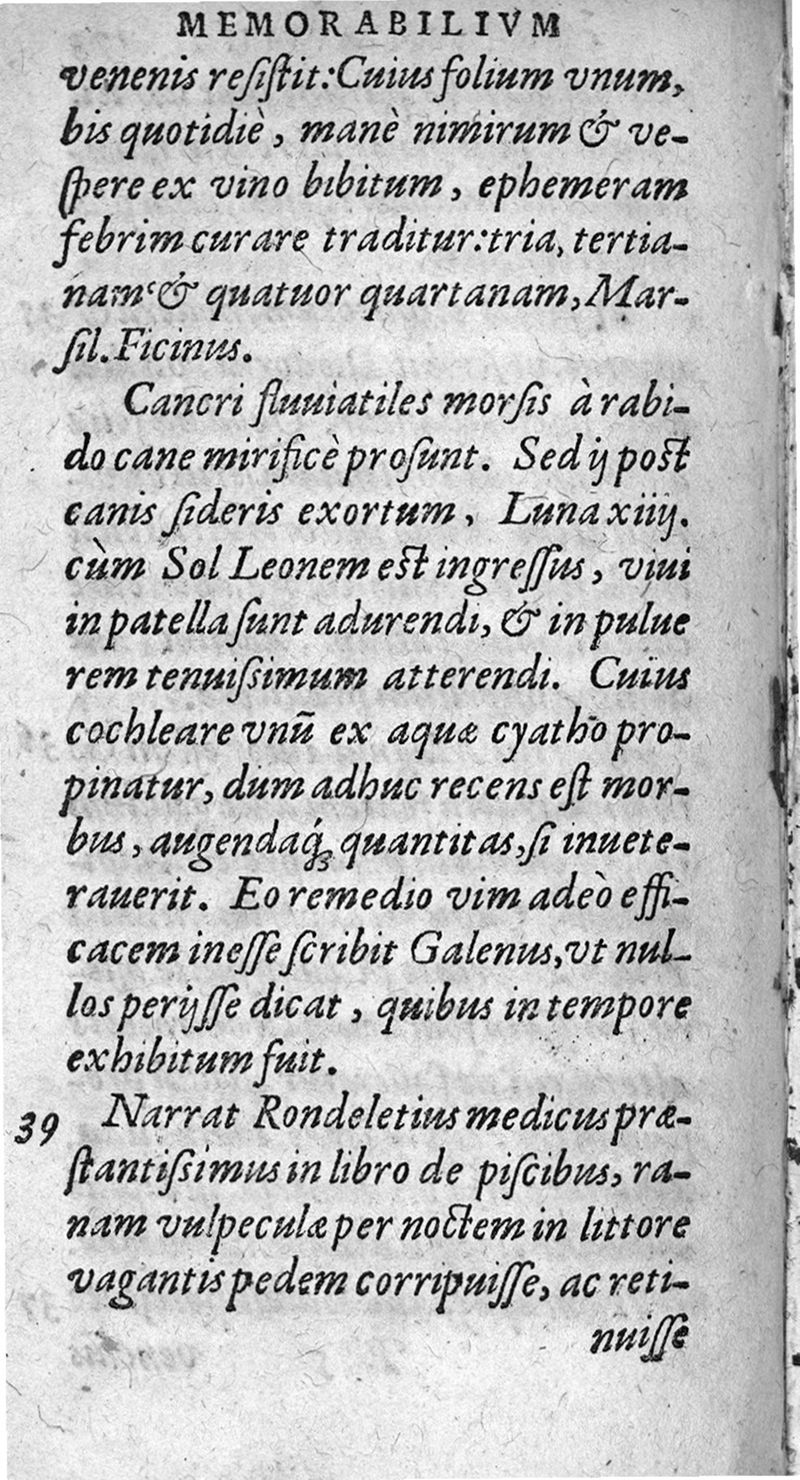 MEMORABILIVM
venenis resistit: Cuius folium vnum,
bis quotidiè, manè nimirum & ve-
spere ex vino bibitum, ephemeram
febrim curare traditur: tria, tertia-
nam: & quatuor quartanam, Mar-
sil. Ficinus.
Cancri fluuiatiles morsis à rabi-
do cane mirificè prosunt. Sed ij post
canis sideris exortum, Luna xiiij.
cùm Sol Leonem est ingressus, viui
in patella sunt adurendi, & in pulue
rem tenuissimum atterendi. Cuius
cochleare vnũ ex aquæ cyatho pro-
pinatur, dum adhuc recens est mor-
bus, augendaq́; quantitas, si inuete-
rauerit. Eo remedio vim adeò effi-
cacem inesse scribit Galenus, vt nul-
los perijsse dicat, quibus in tempore
exhibitum fuit.
39 Narrat Rondeletius medicus præ-
stantissimus in libro de piscibus, ra-
nam vulpeculæ per noctem in littore
vagantis pedem corripuisse, ac reti-
nuisse